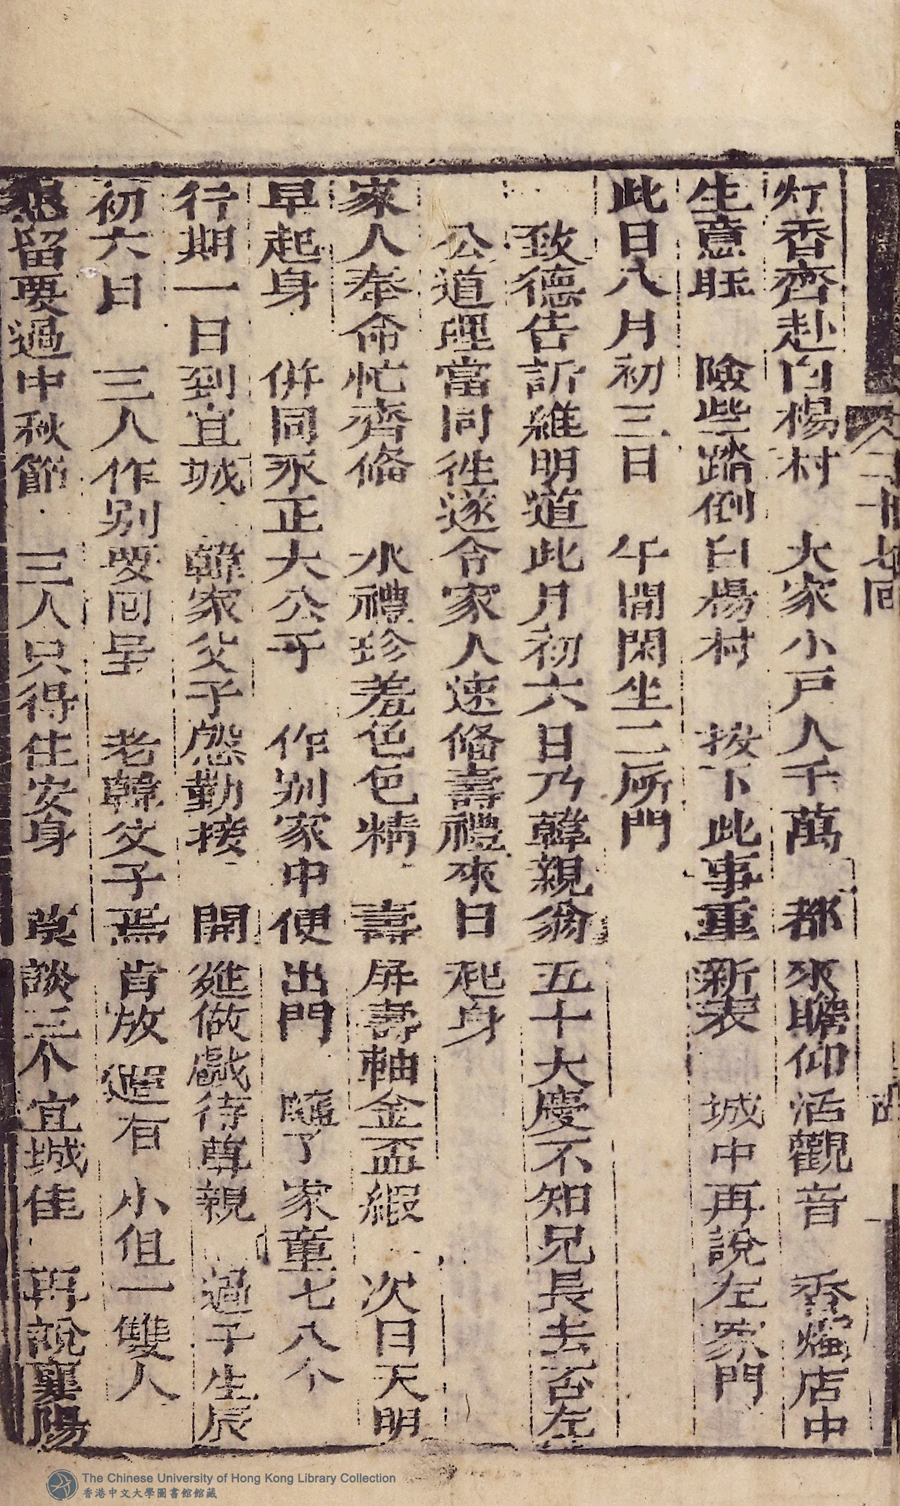 灯香齊赴白楊村　大家小戶人千萬　都來瞻仰活觀音　香燭店中
生意旺　險些踏倒白楊村　按下此事重新表　城中再說左家門
此日八月初三日　午間閑坐二所門
致德告訴維明道此月初六日乃韓親翁五十大慶不知兄長去否左
公道理當同徃遂令家人速俻壽禮來日起身
家人奉命忙齊俻　水禮珍羞色色精　壽屏壽軸金盃緞　次日天明
早起身　併同永正大公子　作别家中便出門　隨了家童七八个
行期一日到宜城　韓家父子慇勤接　開筵做戲待尊親　過了生辰
初六日　三人作别要囘呈　老韓父子焉肯放　還有小伹一雙人
懇留要過中秋節　三人只得住安身　莫談三个宜城住　再說襄陽
二十七囘
The Chinese University of Hong Kong Library Collection
香港中文大學圖書館館藏